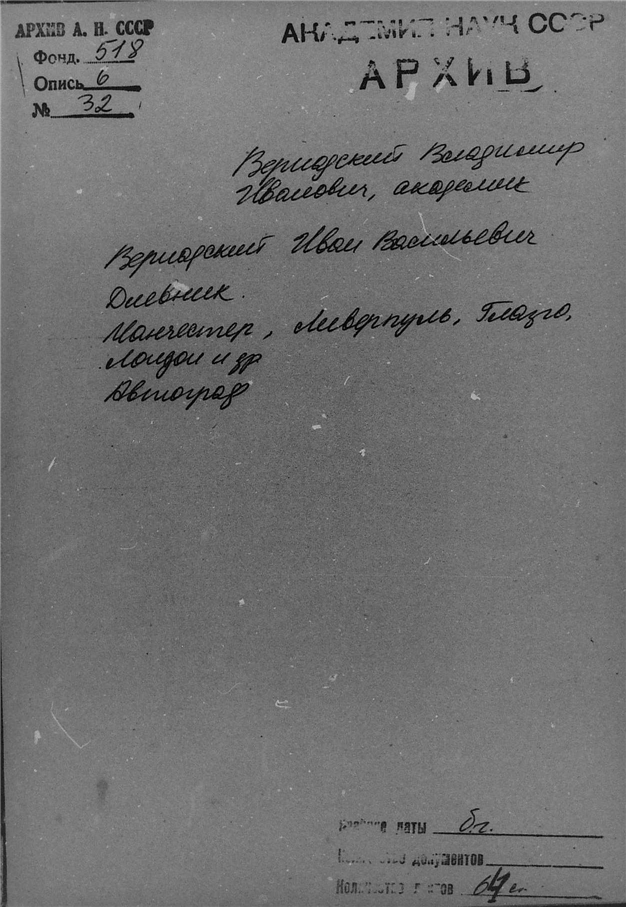 АРХИВ А. Н. СССР
Фонд. 518
Опись 6
№ 32
АКАДЕМИЯ НАУК СССР
АРХИВ
Вернадский Владимир
Иванович, академик
Вернадский Иван Васильевич
Дневник.
Манчестер, Ливерпуль, Глазго,
Лондон и др
Автограф
Крайние даты б.г.
Количество документов
Количество листов